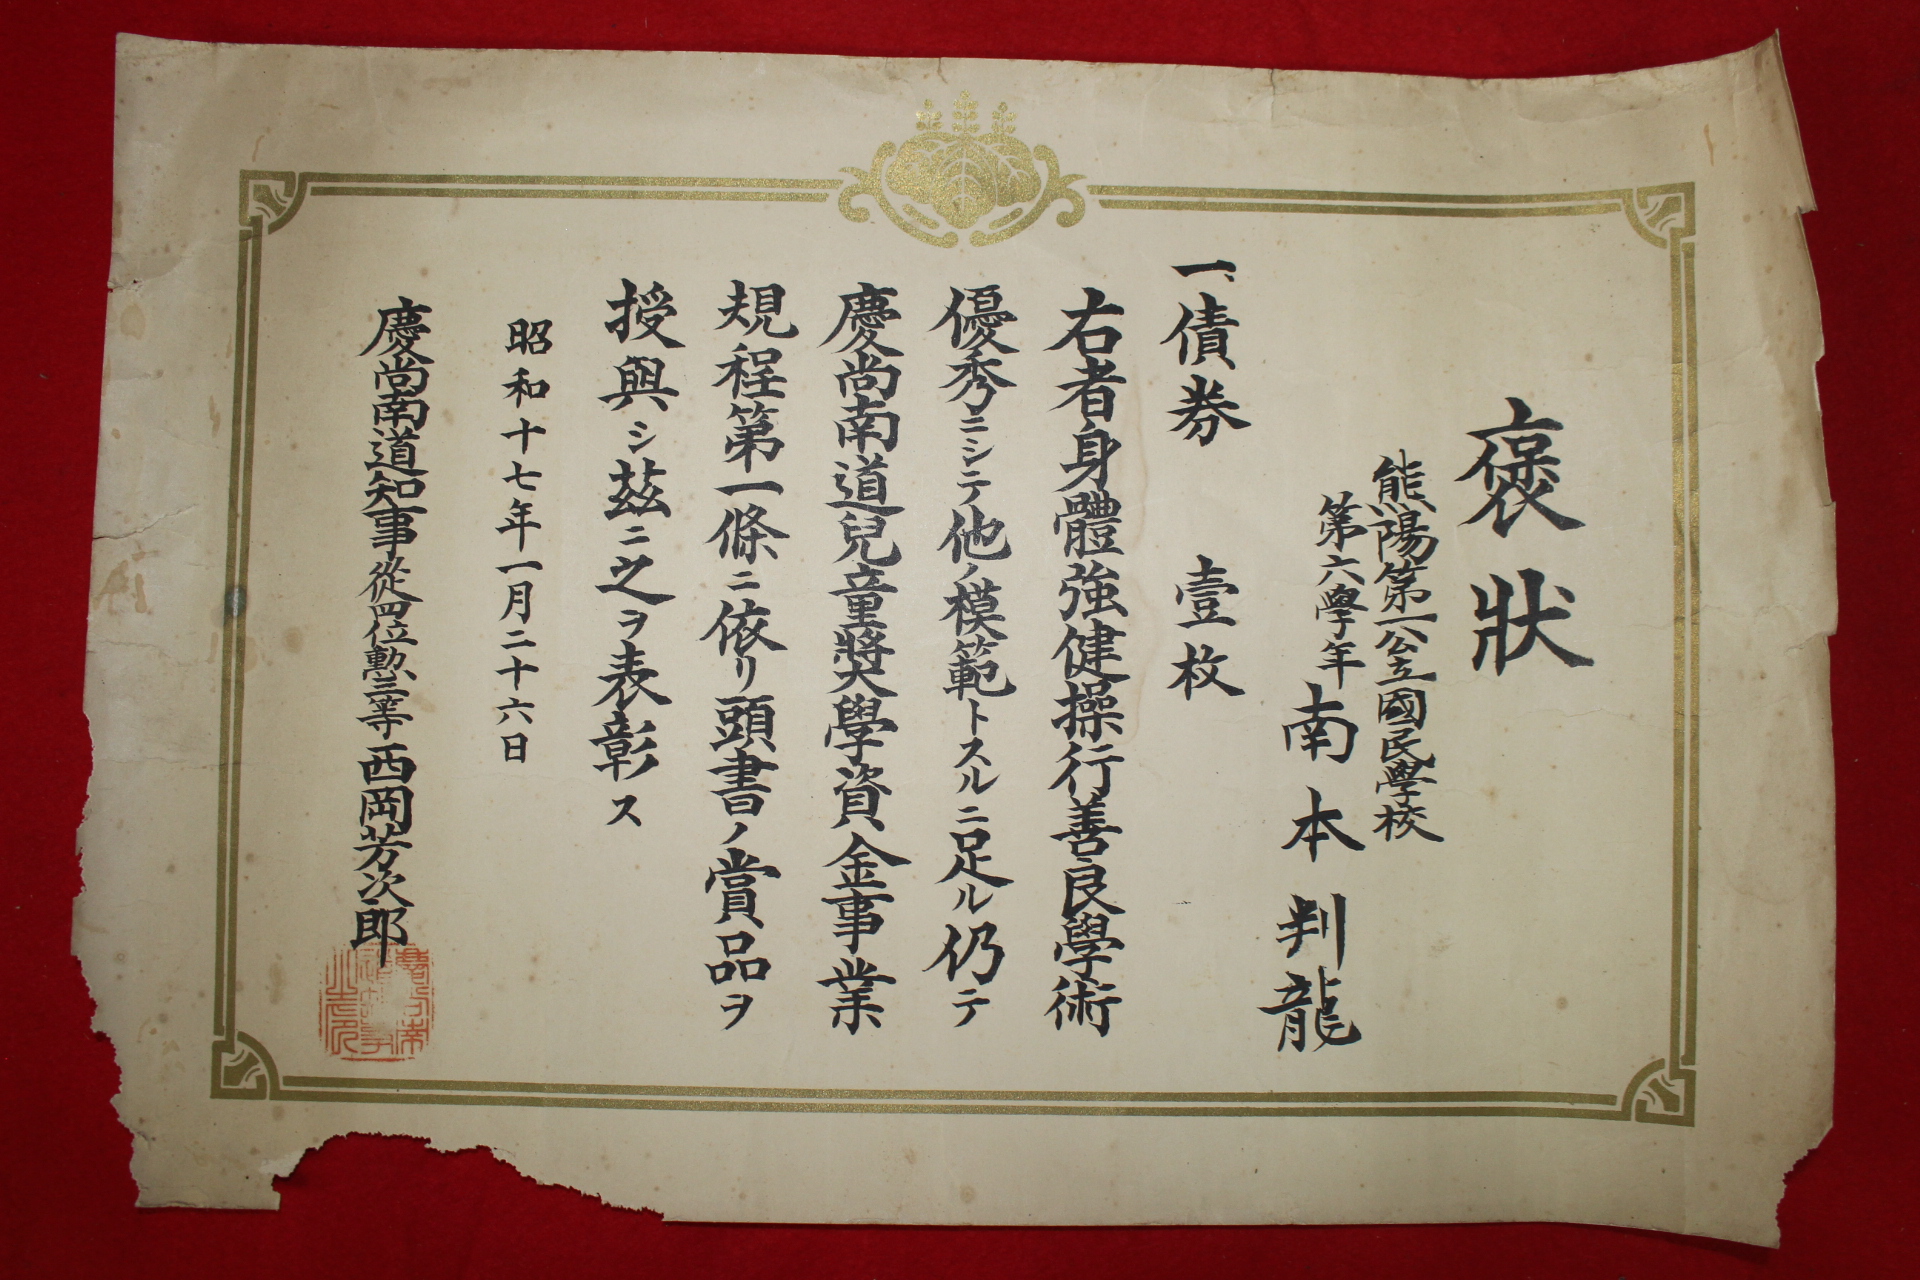 褒狀
熊陽第一公立國民學校
第六學年
南本判龍
一、債券　壹枚
右者身體強健操行善良學術
優秀ニシテ他ノ模範トスルニ足ル仍テ
慶尚南道兒童奬學資金事業
規程第一條ニ依リ頭書ノ賞品ヲ
授與シ茲ニ之ヲ表彰ス
昭和十七年一月二十六日
慶尚南道知事從四位勳三等西岡芳次郎